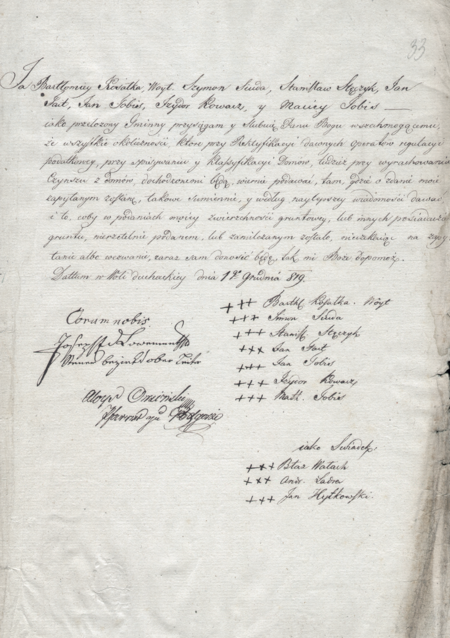 33
Ja Bartłomiey Kosałka, Woyt, Szymon Siuda, Stanisław Stęzyk, Jan
Jan Sobis, Izydor Kowacz, y Maciey Sobis
iako przełozony Gminny przysięgam y slubuię Panu Bogu wszechmogącemu,
że wszystkie okoliczności, ktore przy Rektyfikacyi dawnych operatow regulacyi
podatkowey, przy opisywaniu y Klassyfikacyi Domow, tudzież przy wyrachowaniu
Czynszu z domow, dochodzonemi będą, wiernie podawać, tam, gdzie o zdanie moie
zapytanym zostanę, takowe sumiennie, y według naylepszey wiadomości dawać
i to, coby w podaniach moiey zwierzchności gruntowey, lub innych posiadaczy
gruntu, nierzetelnie podanem, lub zamilczanem zostało, nieczekaiąc na zapy
tanie albo wezwanie, zaraz sam donosić będę, tak mi Boże dopomoż.
Dattum w Woli duchackiey dnia 12 Grudnia 819.
Coram nobis
+++ Barthl. Kosałka. Woyt
+++ Simon Siuda
+++ Stanisł. Stęzyk
+++ Jan
+++ Jan Sobis
+++ Izydor Kowacz
+++ Math. Sobis
iako Swiadek
+++ Błaz Walach
+++ And.
+++ Jan Hytkowski